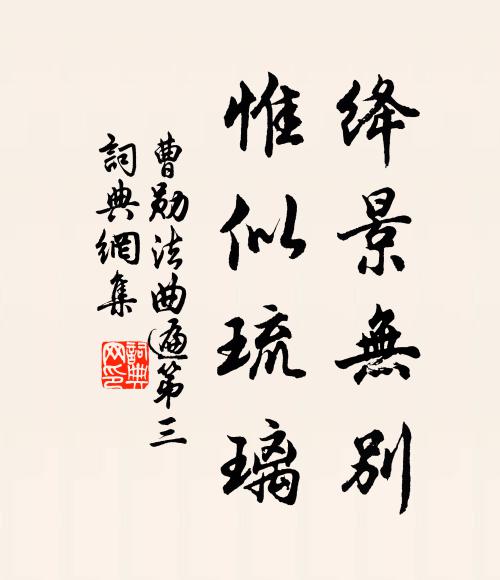 绛景無别
惟似琉璃
曹勋法曲遍第三
詞典網集
詞典網印